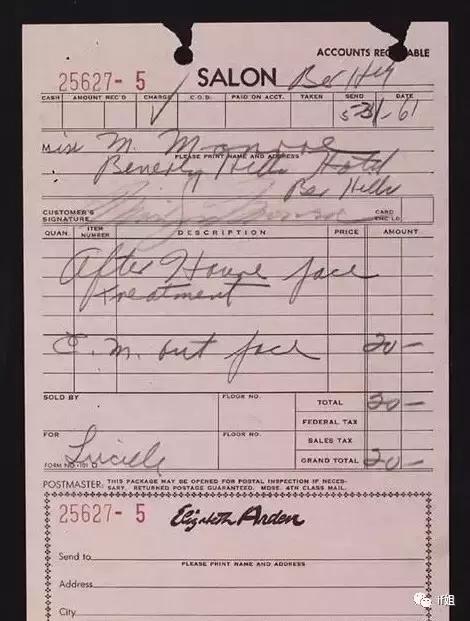 ACCOUNTS RECEIVABLE
25627- 5 SALON Bev Hills
CASH AMOUNT REC'D CHARGE C.O.D. PAID ON ACCT. TAKEN SEND DATE
✓ 5-31-61
Miss M. Monroe
PLEASE PRINT NAME AND ADDRESS
Beverly Hills Hotel
Bev Hills
CUSTOMER'S SIGNATURE CARD ENCLD.
QUAN. ITEM NUMBER DESCRIPTION PRICE AMOUNT
After Hour face
treatment
E. M. out face 20-
SOLD BY FLOOR NO. TOTAL 20-
FEDERAL TAX
FOR FLOOR NO. SALES TAX
Lucielle GRAND TOTAL 20-
FORM NO. 101
POSTMASTER: THIS PACKAGE MAY BE OPENED FOR POSTAL INSPECTION IF NECES-
SARY. RETURNED POSTAGE GUARANTEED. MDSE. 4TH CLASS MAIL.
25627- 5 Elizabeth Arden
Send to
PLEASE PRINT NAME AND ADDRESS
Address
City
if姐